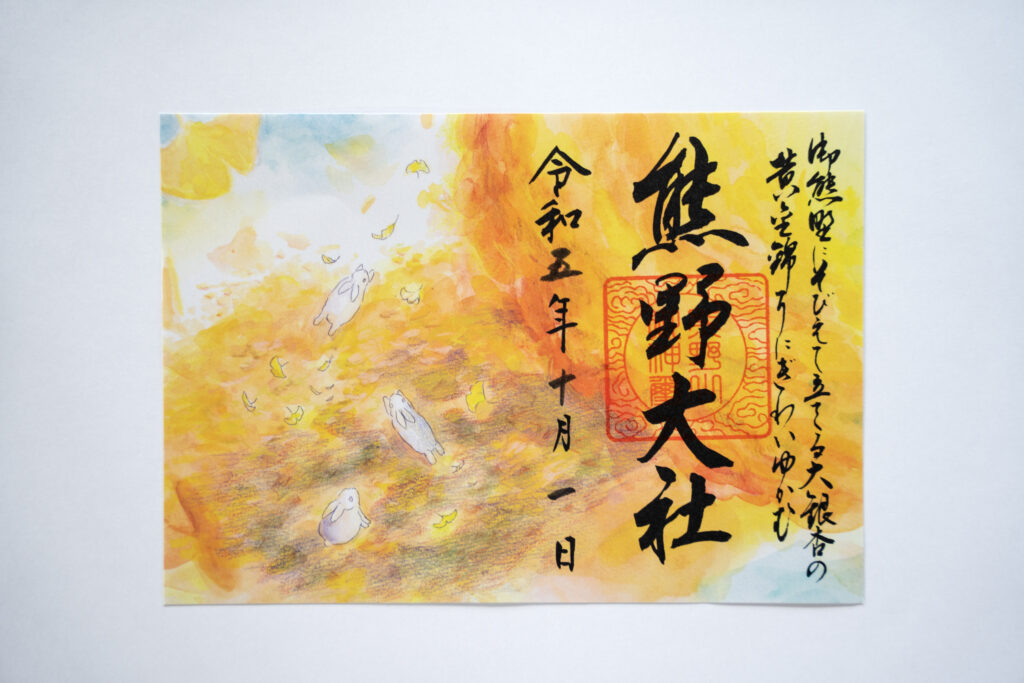 御熊野にそびえて立てる大銀杏の
黄金錦ににぎわいゆかむ
熊野大社
令和五年十月一日